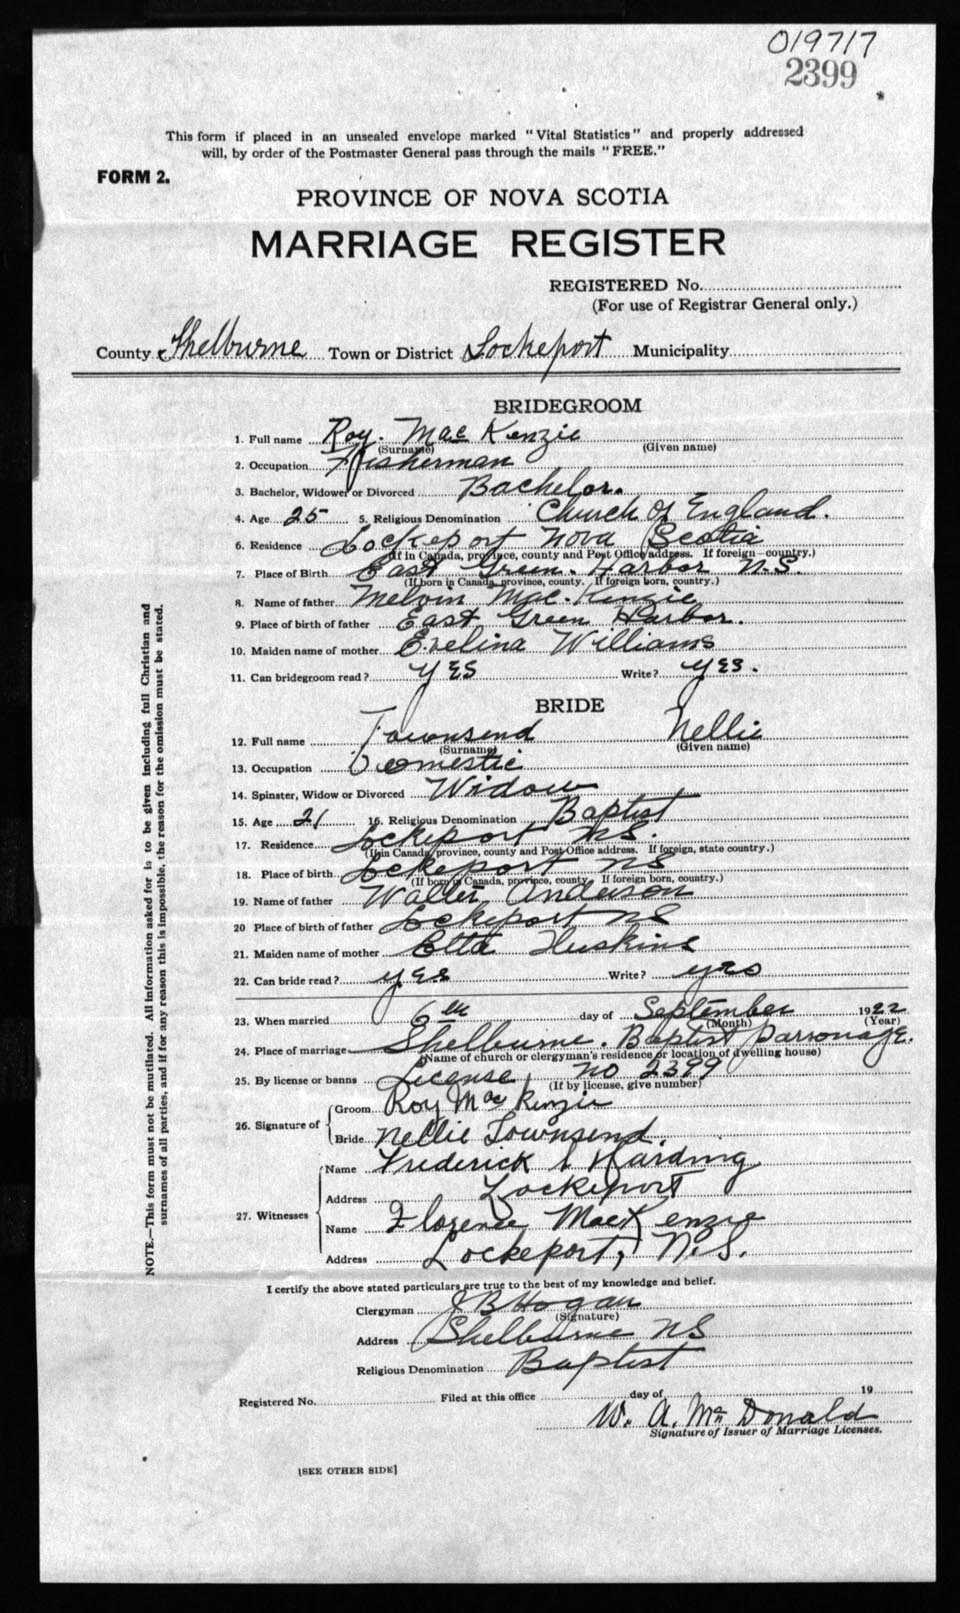 019717
2399
This form if placed in an unsealed envelope marked "Vital Statistics" and properly addressed
will, by order of the Postmaster General pass through the mails "FREE."
FORM 2.
PROVINCE OF NOVA SCOTIA
MARRIAGE REGISTER
REGISTERED No.
(For use of Registrar General only.)
County Shelburne Town or District Lockeport Municipality
BRIDEGROOM
1. Full name Roy. Mac Kenzie
(Surname) (Given name)
2. Occupation Fisherman
3. Bachelor, Widower or Divorced Bachelor.
4. Age 25 5. Religious Denomination Church of England.
6. Residence Lockeport Nova Scotia
(If in Canada, province, county and Post Office address. If foreign—country.)
7. Place of Birth East Green. Harbor N.S.
(If born in Canada, province, county. If foreign born, country.)
8. Name of father Melvin Mac. Kenzie
9. Place of birth of father East Green Harbor.
10. Maiden name of mother Evelina Williams
11. Can bridegroom read? yes Write? yes.
BRIDE
12. Full name Townsend Nellie
(Surname) (Given name)
13. Occupation Domestic
14. Spinster, Widow or Divorced Widow
15. Age 21 16. Religious Denomination Baptist
17. Residence Lockeport N.S.
(If in Canada, province, county and Post Office address. If foreign, state country.)
18. Place of birth Lockeport NS
(If born in Canada, province, county. If foreign born, country.)
19. Name of father Walter Anderson
20 Place of birth of father Lockeport NS
21. Maiden name of mother Etta Huskins
22. Can bride read? yes Write? yes
23. When married 6th day of September 1922
(Month) (Year)
24. Place of marriage Shelburne. Baptist Parsonage.
(Name of church or clergyman's residence or location of dwelling house)
25. By license or banns License no 2399
(If by license, give number)
26. Signature of Groom Roy Mac Kenzie
Bride Nellie Townsend.
27. Witnesses Name Frederick L Harding
Address Lockeport
Name Florence MacKenzie
Address Lockeport, N.S.
I certify the above stated particulars are true to the best of my knowledge and belief.
Clergyman J B Hogan
(Signature)
Address Shelburne NS
Religious Denomination Baptist
Registered No. Filed at this office day of 19
W. A. Mc Donald
Signature of Issuer of Marriage Licenses.
[SEE OTHER SIDE]
NOTE.—This form must not be mutilated. All information asked for is to be given including full Christian and
surnames of all parties, and if for any reason this is impossible, the reason for the omission must be stated.